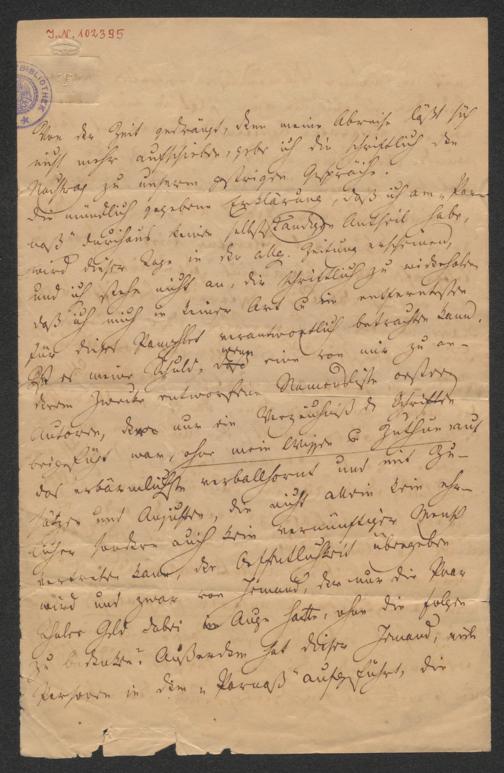 I.N. 102395
BIBLIOTHEK
Von der Zeit gedrängt, denn meine Abreise läßt sich
nicht mehr aufschieben, gebe ich dir schriftlich den
Nachtrag zu unserem gestrigen Gespräche.
Die mündlich gegebene Erklärung, daß ich am „Par-
naß“ durchaus keinen selbstständigen Antheil habe,
wird dieser Tage in der allg. Zeitung erscheinen,
und ich stehe nicht an, dir schriftlich zu wiederholen
daß ich mich in keiner Art u im entferntesten
für dieses Pamphlet verantwortlich betrachten kann.
Ist es meine Schuld, wenn eine von mir zu an-
derem Zwecke entworfene Namensliste oestern
Autoren, der nur ein Verzeichniß der Schriften
beigefügt war, ohne mein Wissen u Zuthun auf
das erbärmlichste verballhornt und mit Zu-
sätzen und Ausfällen, die nicht allein kein ehr-
licher sondern auch kein vernünftiger Mensch
vertreten kann, der Oeffentlichkeit übergeben
wird und zwar von Jemand, der nur die Paar
Thaler Geld dabei im Auge hatte, ohne die Folgen
zu bedenken? Außerdem hat dieser Jemand, viele
Personen in dem „Parnaß“ aufgeführt, die